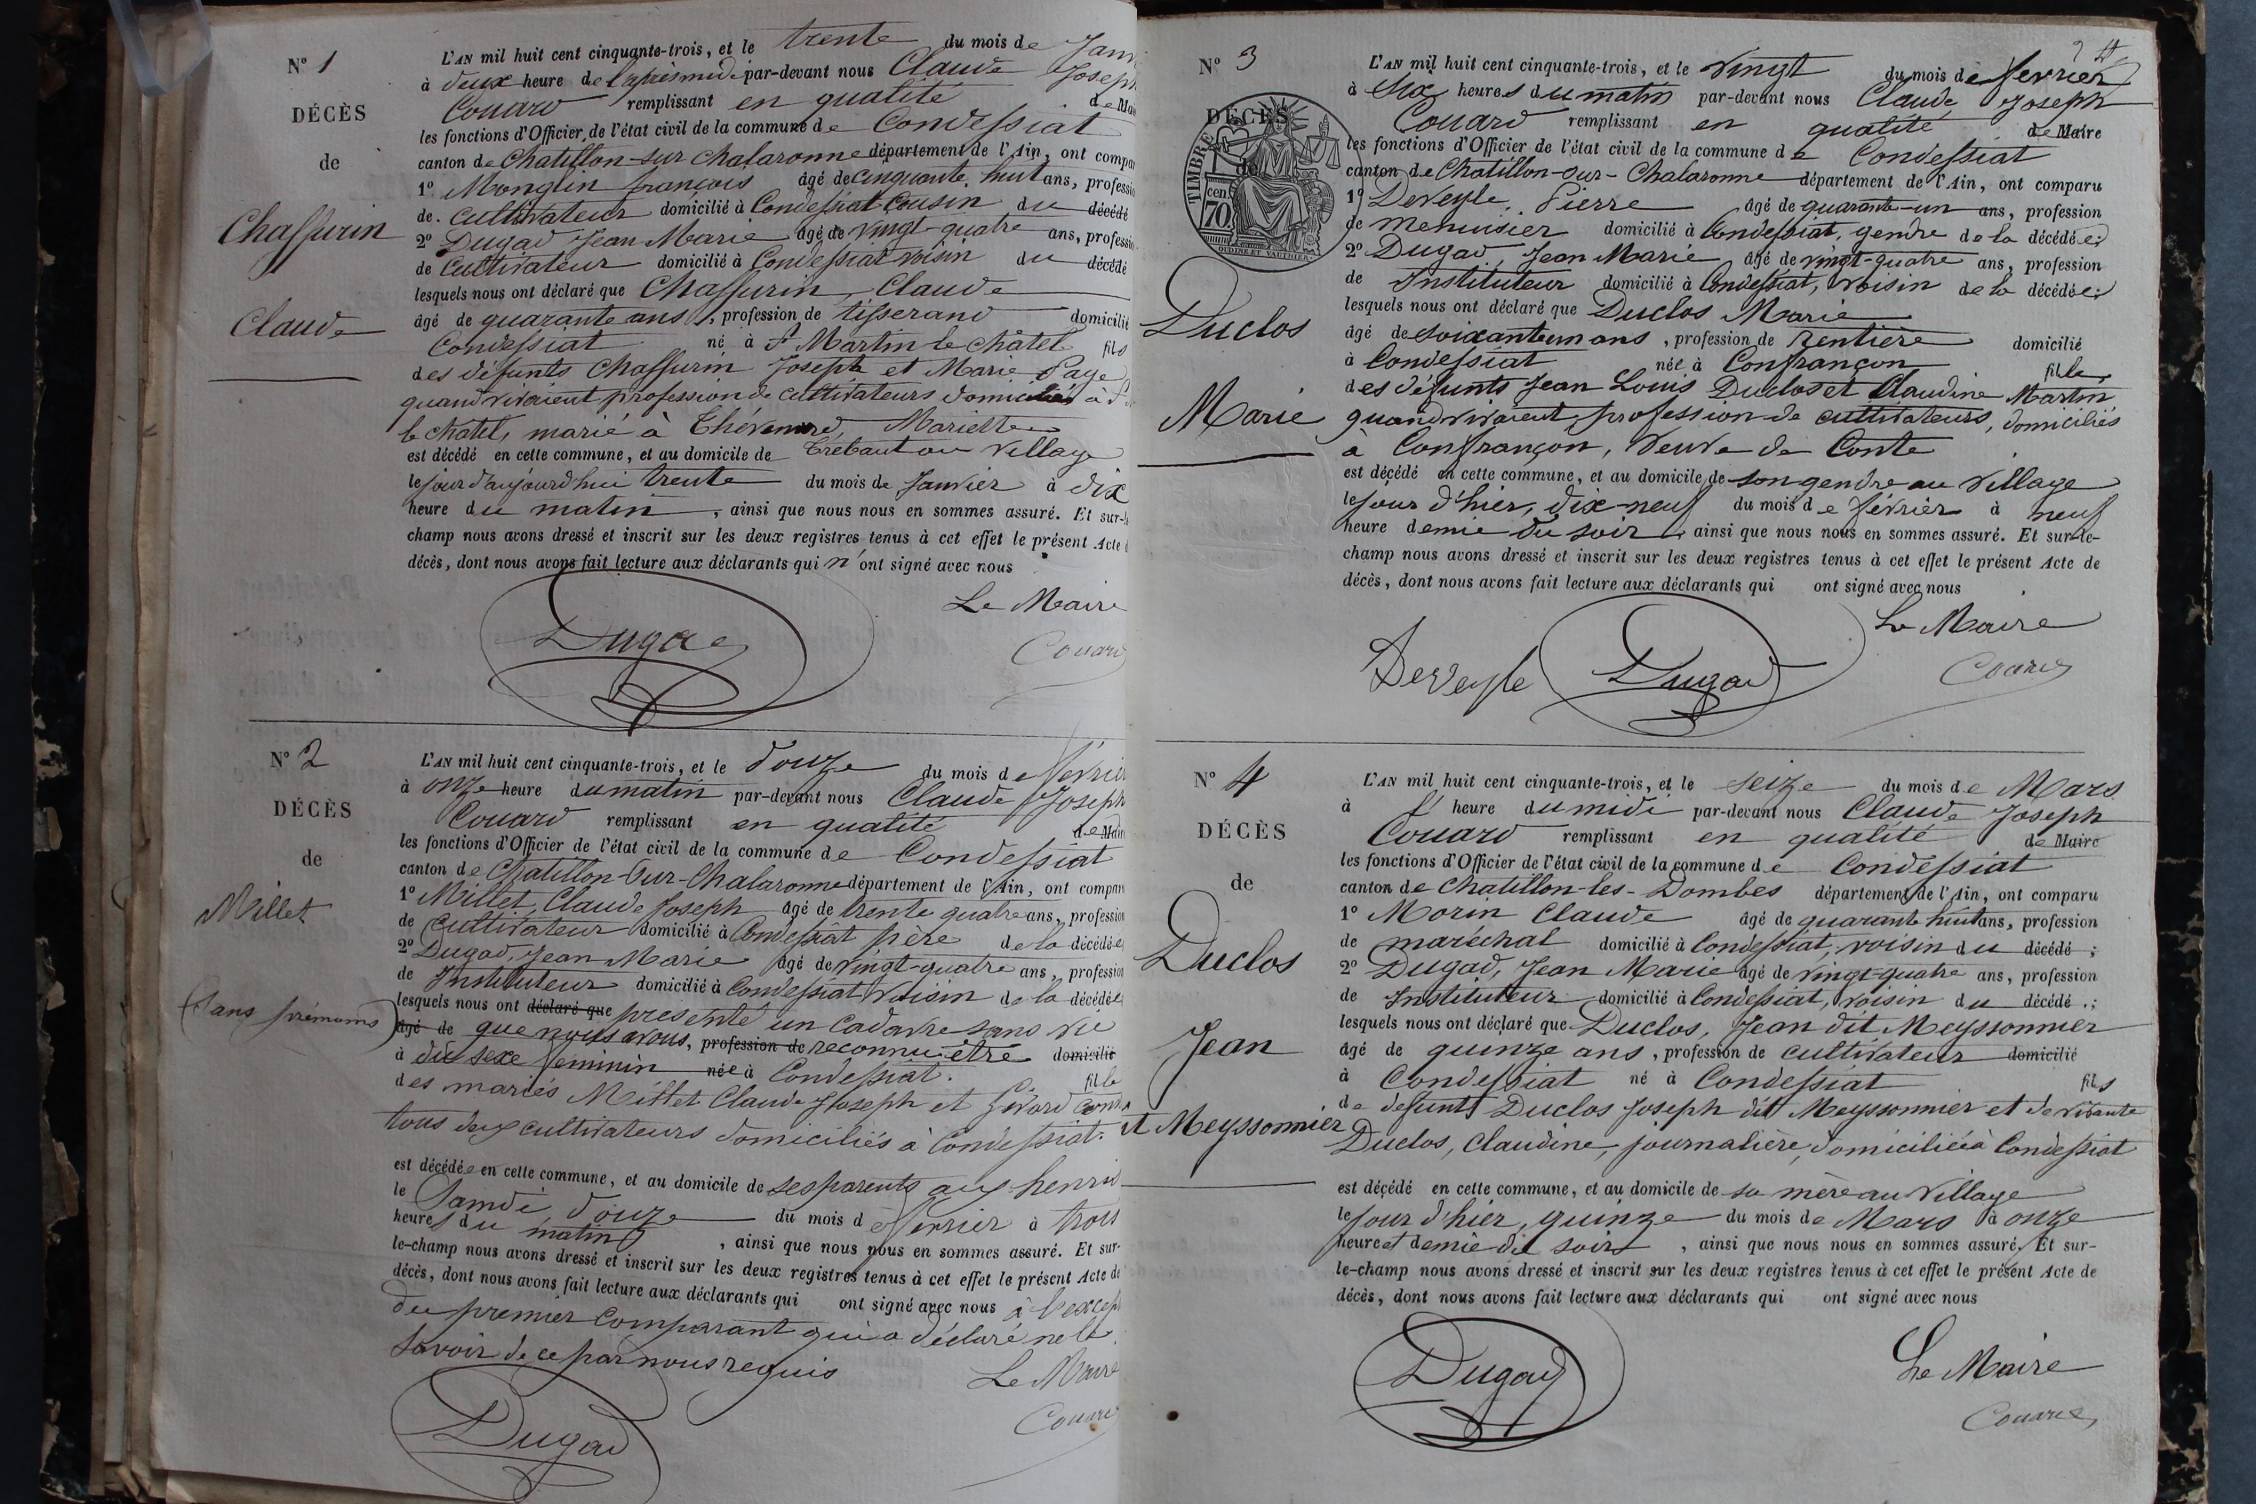 N° 1
DÉCÈS
de
Chassurin
Claude
L'AN mil huit cent cinquante-trois, et le trente du mois de Janv
à deux heure de l'après midi par-devant nous Claude Joseph
Couard remplissant en qualité de Mai
les fonctions d'Officier de l'état civil de la commune de Condessiat
canton de Chatillon-sur-Chalaronne département de l'Ain, ont compa
1° Monglin françois âgé de cinquante huit ans, professio
de cultivateur domicilié à Condessiat Cousin du décédé
2° Dugad Jean Marie âgé de vingt-quatre ans, professio
de Cultivateur domicilié à Condessiat voisin du décédé
lesquels nous ont déclaré que Chassurin, Claude
âgé de quarante ans, profession de tisserand domicilié
Condessiat né à St Martin le châtel fils
des défunts Chassurin Joseph et Marie Page
quand vivaient profession de cultivateurs domiciliés à St
le Châtel, marié à Thévenard, Mariette
est décédé en cette commune, et au domicile de Trébaut au Village
le jour d'aujourd'hui trente du mois de Janvier à dix
heure du matin, ainsi que nous nous en sommes assuré. Et sur-le
champ nous avons dressé et inscrit sur les deux registres tenus à cet effet le présent Acte d
décès, dont nous avons fait lecture aux déclarants qui n'ont signé avec nous
Le Maire
Dugad
Couard
N° 2
DÉCÈS
de
Millet
(Sans prénoms)
L'AN mil huit cent cinquante-trois, et le douze du mois de février
à onze heure du matin par-devant nous Claude Joseph
Couard remplissant en qualité de Mai
les fonctions d'Officier de l'état civil de la commune de Condessiat
canton de Chatillon-Sur-Chalaronne département de l'Ain, ont compar
1° Millet, Claude Joseph âgé de trente quatre ans, profession
de cultivateur domicilié à Condessiat père de la décédée
2° Dugad, Jean Marie âgé de vingt-quatre ans, profession
de Instituteur domicilié à Condessiat Voisin de la décédée
lesquels nous ont déclaré que présenté un cadavre sans vie
âgé de que nous avons, profession de reconnu être domicilié
à du sexe féminin née à Condessiat. fille
des mariés Millet Claude Joseph et
tous deux cultivateurs domiciliés à Condessiat.
est décédée en cette commune, et au domicile de ses parents aux henris
le Samdi, douze du mois de février à trois
heures du matin, ainsi que nous nous en sommes assuré. Et sur-
le-champ nous avons dressé et inscrit sur les deux registres tenus à cet effet le présent Acte de
décès, dont nous avons fait lecture aux déclarants qui ont signé avec nous à l'excep
du premier comparant qui a déclaré ne le
Savoir de ce par nous requis
Le Maire
Dugad
Couard
N° 3
DÉCÈS
de
TIMBRE
70 cen
OUDINÉ ET VAUTHIER
Duclos
Marie
L'AN mil huit cent cinquante-trois, et le Vingt du mois de février
à Six heures du matin par-devant nous Claude Joseph
Couard remplissant en qualité de Maire
les fonctions d'Officier de l'état civil de la commune de Condessiat
canton de Chatillon-Sur-Chalaronne département de l'Ain, ont comparu
1° Deveyle, Pierre âgé de quarante-un ans, profession
de menuisier domicilié à Condessiat, gendre de la décédée;
2° Dugad, Jean Marie âgé de vingt-quatre ans, profession
de Instituteur domicilié à Condessiat, voisin de la décédée;
lesquels nous ont déclaré que Duclos Marie
âgé de soixante un ans, profession de rentière domicilié
à Condessiat née à Confrançon fille
des défunts Jean Louis Duclos et Claudine Martin
quand vivaient, profession de cultivateurs, domiciliés
à Confrançon, Veuve de Conte
est décédé en cette commune, et au domicile de son gendre au Village
le jour d'hier, dix-neuf du mois de février à neuf
heure demie du soir, ainsi que nous nous en sommes assuré. Et sur-le-
champ nous avons dressé et inscrit sur les deux registres tenus à cet effet le présent Acte de
décès, dont nous avons fait lecture aux déclarants qui ont signé avec nous
Le Maire
Deveyle Dugad
Couard
N° 4
DÉCÈS
de
Duclos
Jean
dit Meyssonnier
L'AN mil huit cent cinquante-trois, et le seize du mois de Mars
à l' heure du midi par-devant nous Claude Joseph
Couard remplissant en qualité de Maire
les fonctions d'Officier de l'état civil de la commune de Condessiat
canton de Chatillon-les-Dombes département de l'Ain, ont comparu
1° Morin Claude âgé de quarante huit ans, profession
de maréchal domicilié à Condessiat, voisin du décédé;
2° Dugad, Jean Marie âgé de vingt-quatre ans, profession
de Instituteur domicilié à Condessiat, voisin du décédé;
lesquels nous ont déclaré que Duclos, Jean dit Meyssonnier
âgé de quinze ans, profession de cultivateur domicilié
à Condessiat né à Condessiat fils
de defunt Duclos Joseph dit Meyssonnier et de vivante
Duclos, Claudine, journalière, domiciliée à Condessiat
est décédé en cette commune, et au domicile de sa mère au Village
le jour d'hier, quinze du mois de Mars à onze
heure et demie du soir, ainsi que nous nous en sommes assuré. Et sur-
le-champ nous avons dressé et inscrit sur les deux registres tenus à cet effet le présent Acte de
décès, dont nous avons fait lecture aux déclarants qui ont signé avec nous
Le Maire
Dugad
Couard